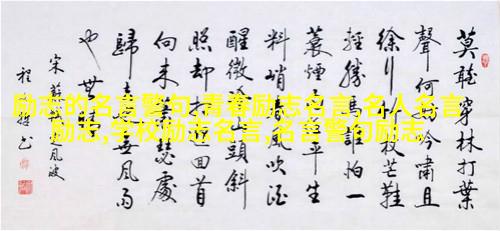 莫聽穿林打葉
聲何妨吟嘯且
徐行竹杖芒鞋
輕勝馬誰怕一
蓑煙雨任平生
料峭春風吹酒
醒微冷山頭斜
照却相迎回首
向来蕭瑟處
歸去也無風雨
也無晴
宋蘇軾定風波
励志的名言警句,青春励志名言,名人名言
励志,学校励志名言,名言警句励志